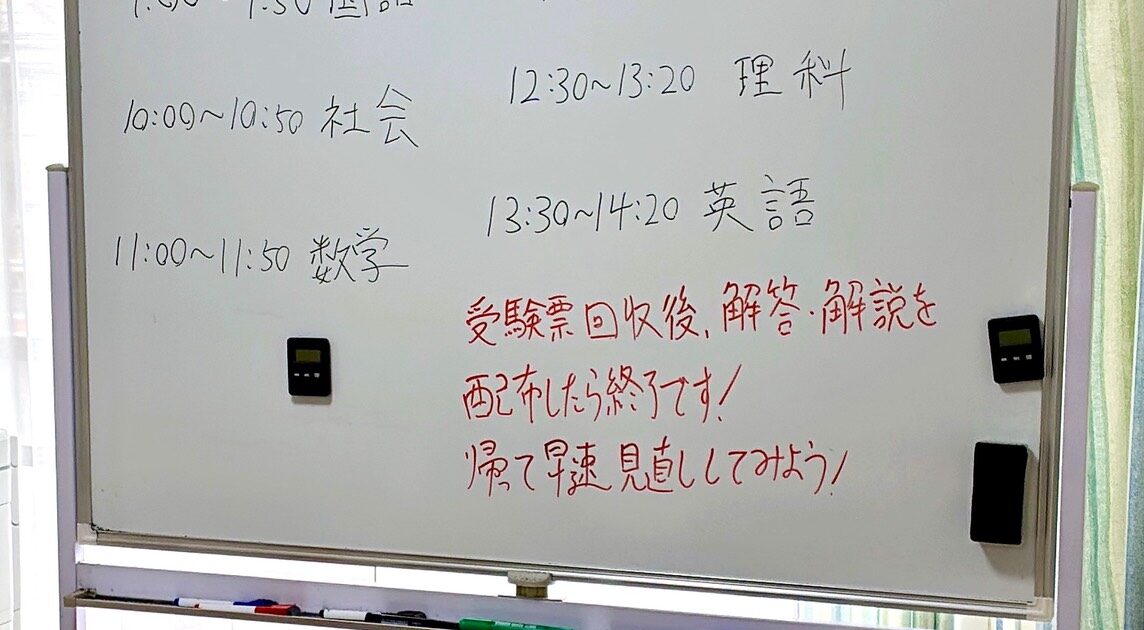 10:00〜10:50 社会
11:00〜11:50 数学
12:30〜13:20 理科
13:30〜14:20 英語
受験票回収後、解答・解説を
配布したら終了です!
帰って早速見直ししてみよう!